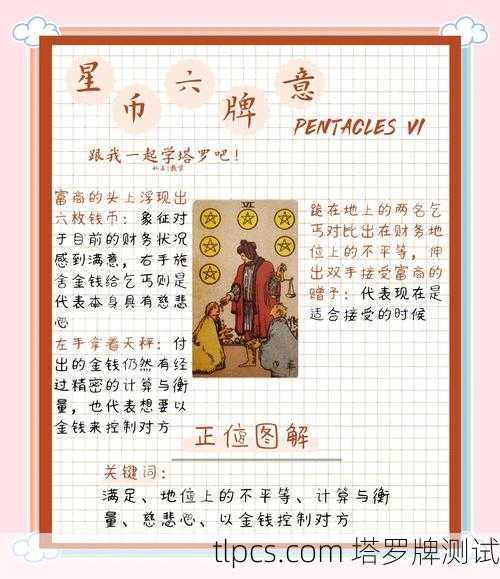 星币六牌意
PENTACLES VI
跟我一起学塔罗吧!
富商的头上浮现出
六枚钱币：象征对
于目前的财务状况
感到满意，右手施
舍金钱给乞丐则是
代表本身具有慈悲
心
左手拿着天秤：付
出的金钱仍然有经
过精密的计算与衡
量，也代表想要以
金钱来控制对方
VI
跪在地上的两名乞
丐对比出在财务地
位上的不平等，伸
出双手接受富商的
赠予：代表现在是
适合接受的时候
正位图解
关键词：
满足、地位上的不平等、计算与衡
量、慈悲心、以金钱控制对方
tlpcs.com 塔罗牌测试